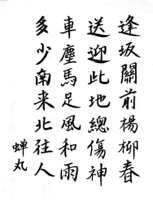 逢坂關前楊柳春
送迎此地總傷神
車塵馬足風和雨
多少南来北往人
蝉丸